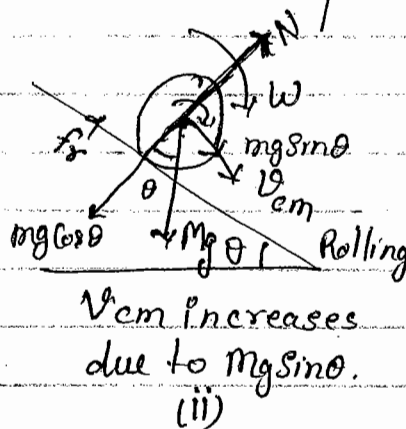 N
ω
fr
mg sinθ
Vcm
θ
mg cosθ
Mg
θ
Rolling
Vcm increases
due to Mg sinθ.
(ii)